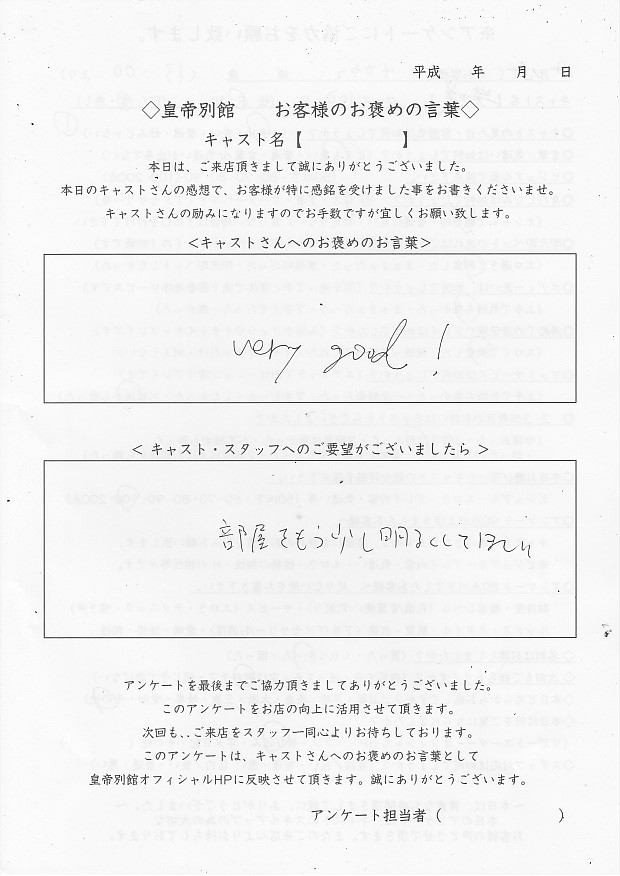 平成 年 月 日
◇皇帝別館 お客様のお褒めの言葉◇
キャスト名【 】
本日は、ご来店頂きまして誠にありがとうございました。
本日のキャストさんの感想で、お客様が特に感銘を受けました事をお書きくださいませ。
キャストさんの励みになりますのでお手数ですが宜しくお願い致します。
<キャストさんへのお褒めのお言葉>
very good !
< キャスト・スタッフへのご要望がございましたら >
部屋をもう少し明るくしてほしい
アンケートを最後までご協力頂きましてありがとうございました。
このアンケートをお店の向上に活用させて頂きます。
次回も、、ご来店をスタッフ一同心よりお待ちしております。
このアンケートは、キャストさんへのお褒めのお言葉として
皇帝別館オフィシャルHPに反映させて頂きます。誠にありがとうございます。
アンケート担当者 ( )